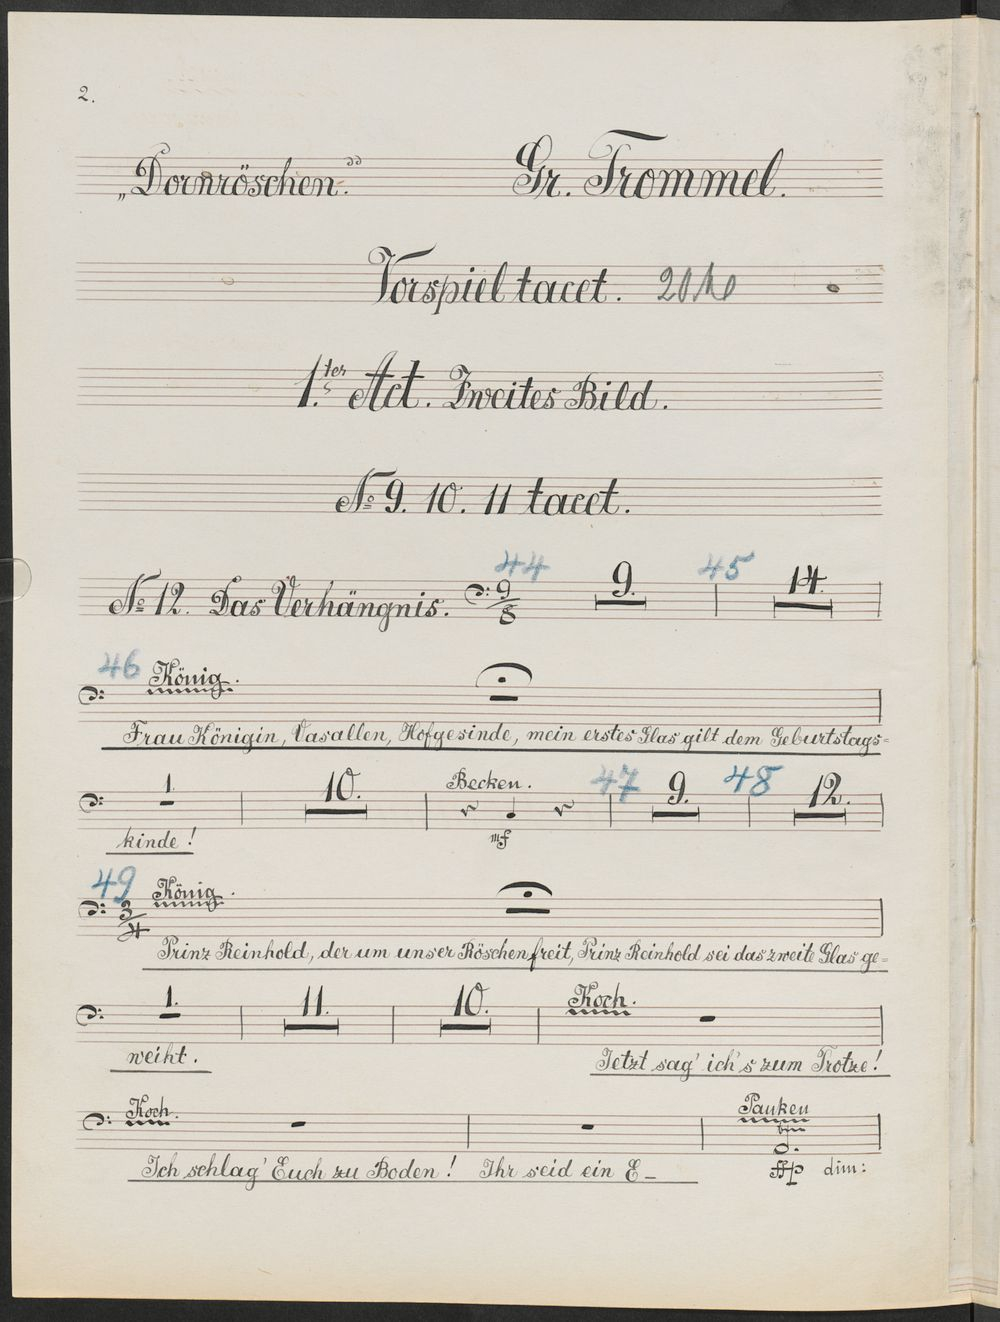 2.
„Dornröschen.“ Gr. Trommel.
Vorspiel tacet.
1.ter Act. Zweites Bild.
No 9. 10. 11 tacet.
44 45
No 12. Das Verhängnis. 9/8 9. 14.
46 König.
Frau Königin, Vasallen, Hofgesinde, mein erstes Glas gilt dem Geburtstags=
1. 10. Becken. 47 9. 48 12.
kinde! mf
49 König.
3/4
Prinz Reinhold, der um unser Röschen freit, Prinz Reinhold sei das zweite Glas ge=
1. 11. 10. Koch.
weiht. Jetzt sag' ich's zum Trotze!
Koch. Pauken
Ich schlag' Euch zu Boden! Ihr seid ein E- ffp dim: